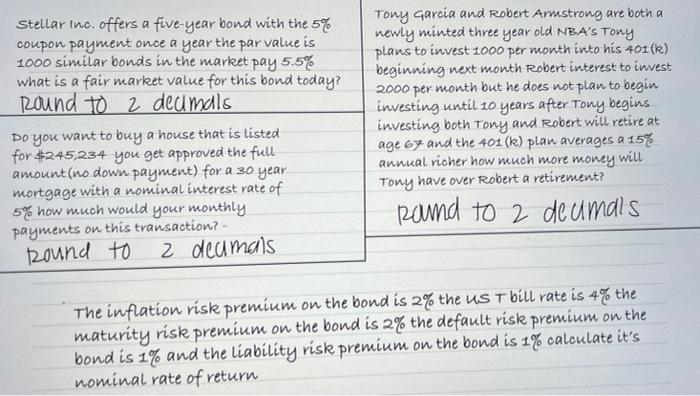 Stellar Inc. offers a five-year bond with the 5%
coupon payment once a year the par value is
1000 similar bonds in the market pay 5.5%
what is a fair market value for this bond today?
Round to 2 decimals
Do you want to buy a house that is listed
for $245,234 you get approved the full
amount (no down payment) for a 30 year
mortgage with a nominal interest rate of
5% how much would your monthly
payments on this transaction? -
Round to 2 decimals
Tony Garcia and Robert Armstrong are both a
newly minted three year old NBA's Tony
plans to invest 1000 per month into his 401(k)
beginning next month Robert interest to invest
2000 per month but he does not plan to begin
investing until 10 years after Tony begins
investing both Tony and Robert will retire at
age 67 and the 401(k) plan averages a 15%
annual richer how much more money will
Tony have over Robert a retirement?
Round to 2 decimals
The inflation risk premium on the bond is 2% the US T bill rate is 4% the
maturity risk premium on the bond is 2% the default risk premium on the
bond is 1% and the liability risk premium on the bond is 1% calculate it's
nominal rate of return